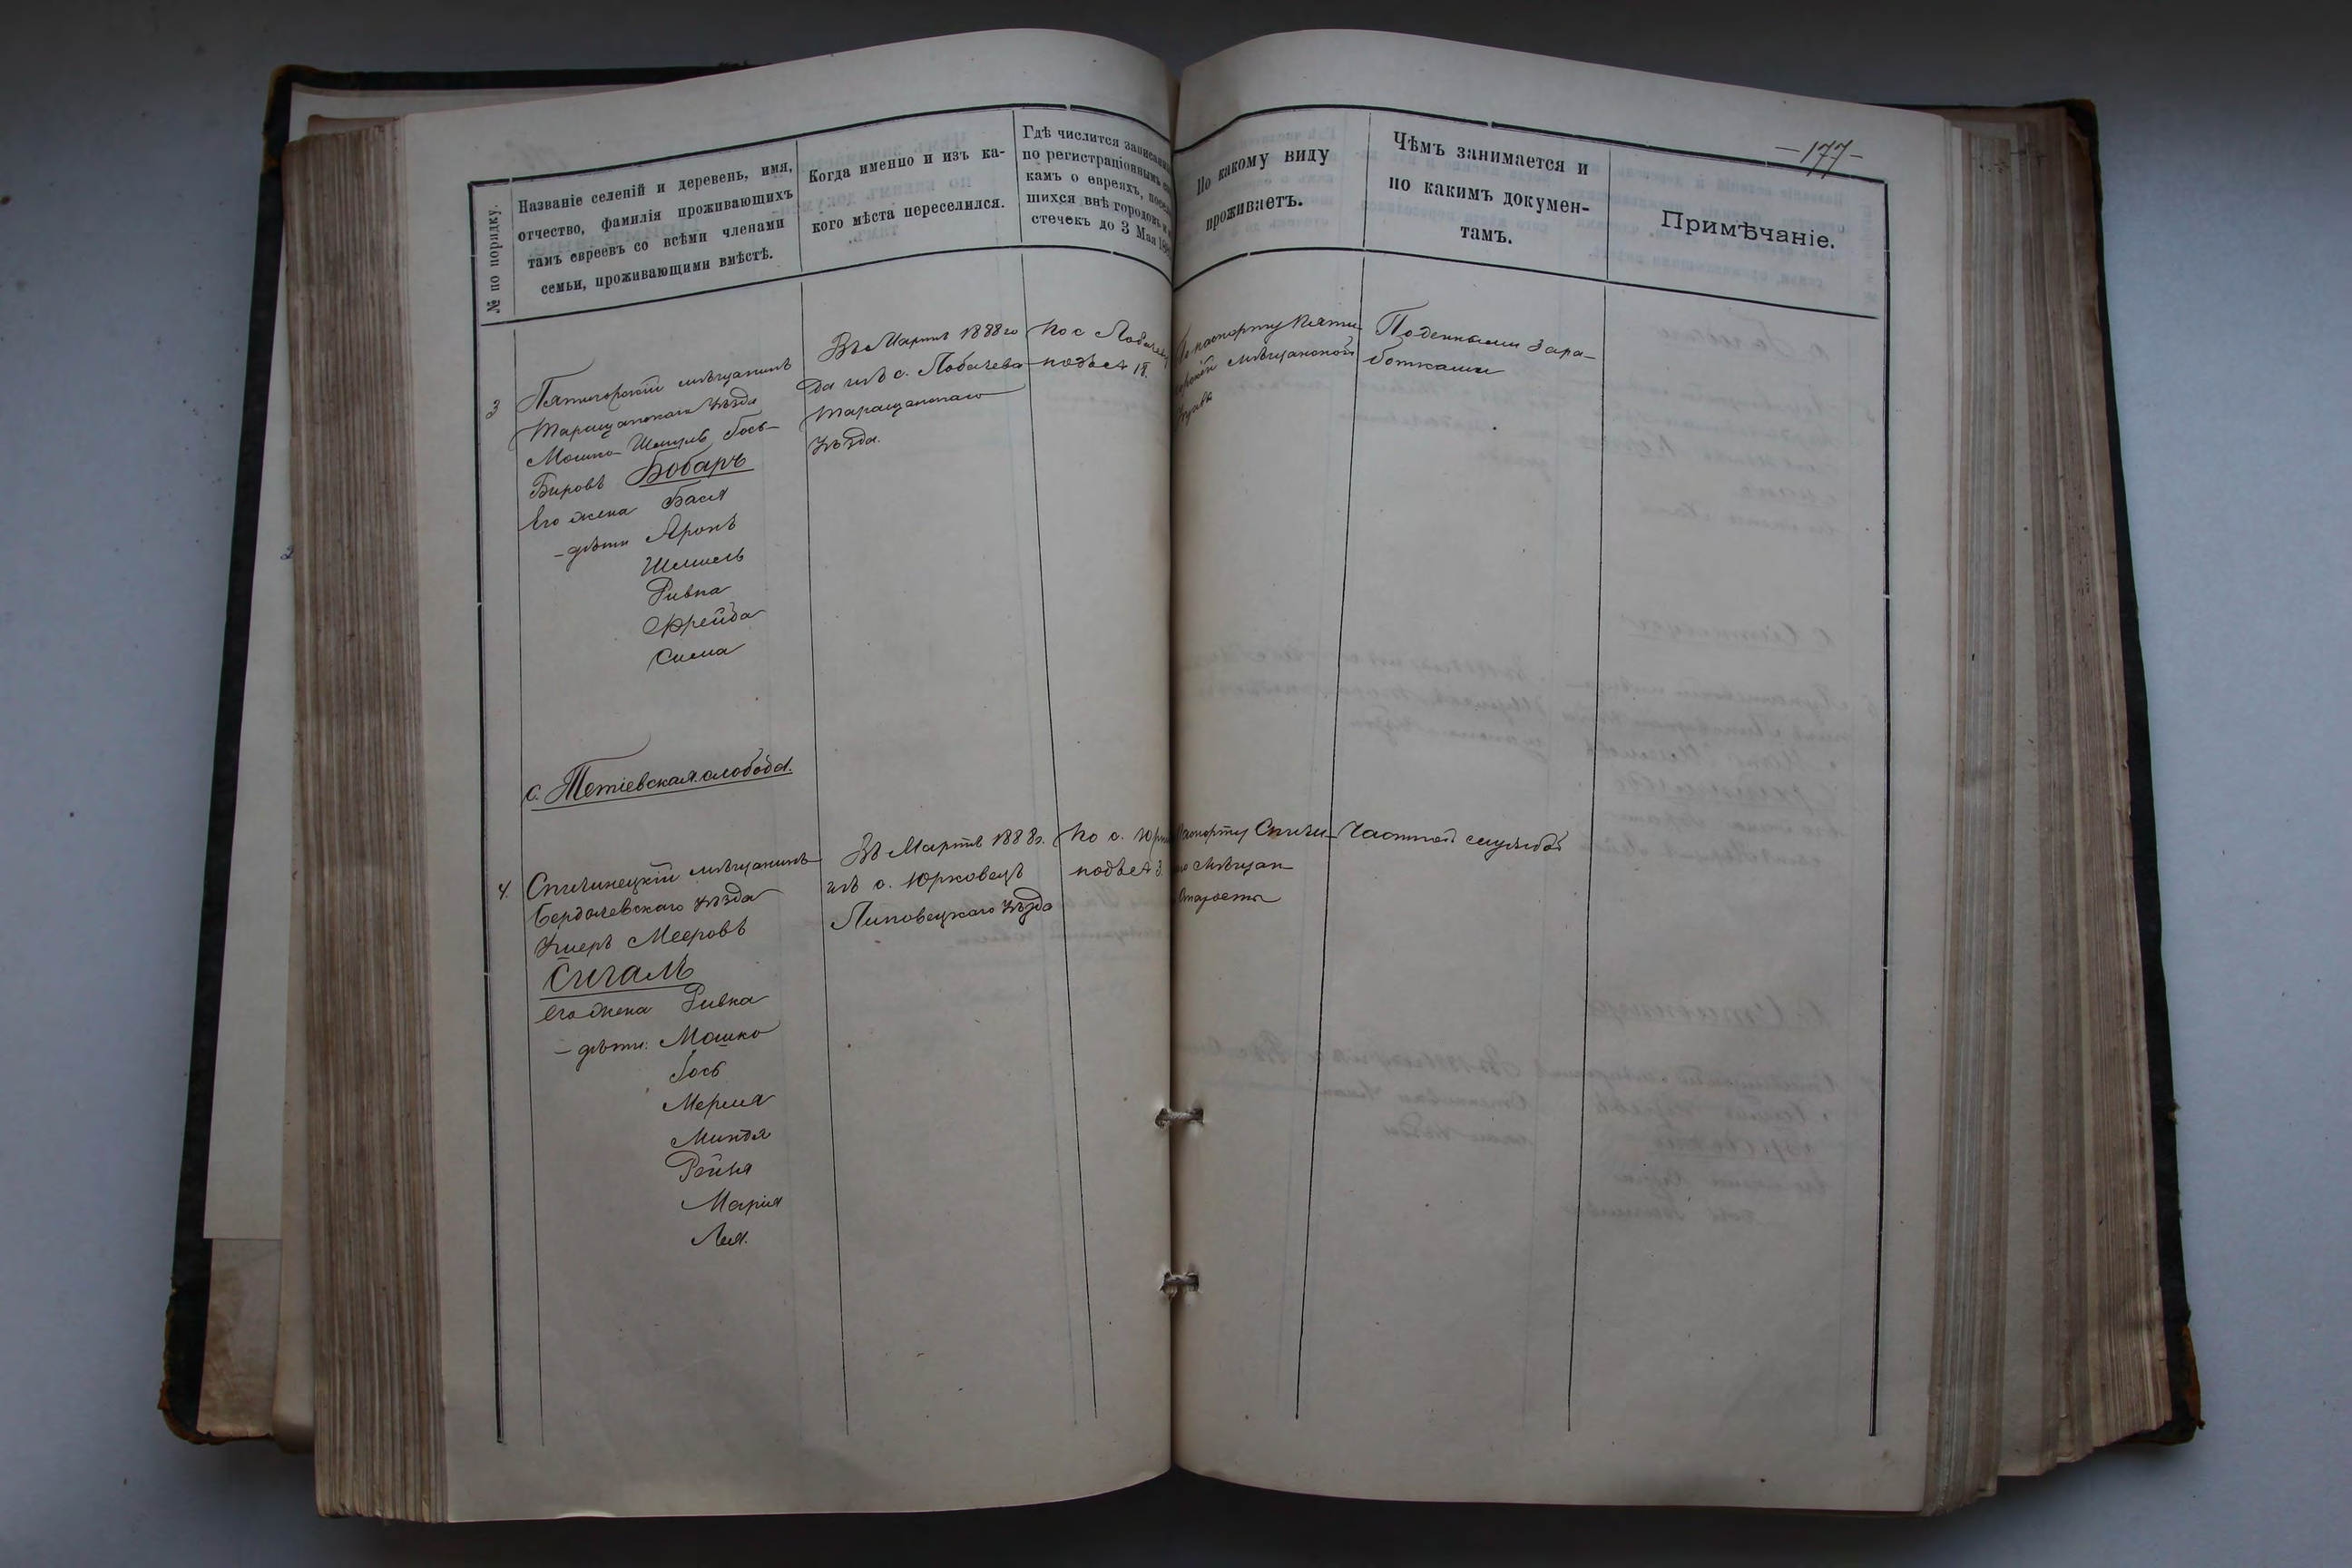 -177-
№ по порядку.
Названіе селеній и деревень, имя,
отчество, фамилія проживающихъ
тамъ евреевъ со всѣми членами
семьи, проживающими вмѣстѣ.
Когда именно и изъ ка-
кого мѣста переселился.
Гдѣ числится
по регистраціоннымъ
камъ о евреяхъ,
шихся внѣ городовъ и
стечекъ до 3 Мая
По какому виду
проживаетъ.
Чѣмъ занимается и
по какимъ докумен-
тамъ.
Примѣчаніе.
3
Пятигорскій мѣщанинъ
Таращанскаго Уѣзда
Мошко Іось-
Бобаръ
Его жена Бася
- дѣти Аронъ
Шмиель
Ривка
Фрейда
Сима
Въ Мартѣ 1888 го
да изъ с. Лобачева
Таращанскаго
Уѣзда.
По с
подъ № 18.
По паспорту Пяти
мѣщанской
Управы
Поденными зара-
ботками
с. Тетіевская слобода.
4.
Спичинецкій мѣщанинъ
Бердичевскаго Уѣзда
Мееровъ
Сигалъ
Его жена Ривка
- дѣти: Мошко
Іось
Миндя
Рейзя
Марія
Лея.
Въ Мартѣ 1888 г.
изъ с. Юрковецъ
Липовецкаго Уѣзда
По с.
подъ № 3.
Паспорту Спичи-
мѣщан
Старосты
Частной службой